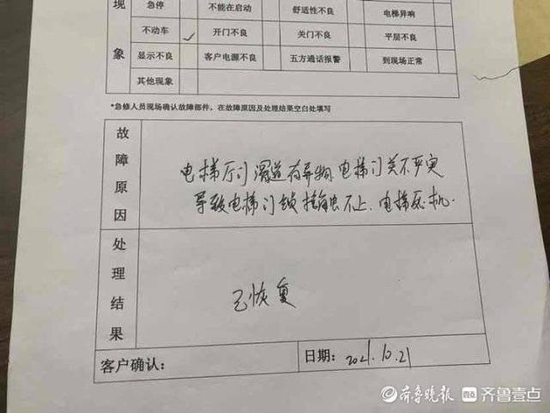 现象
急停 不能在启动 舒适性不良 电梯异响
不动车 ✓ 开门不良 关门不良 平层不良
显示不良 客户电源不良 五方通话报警 到现场正常
其他现象
*急修人员现场确认故障部件，在故障原因及处理结果空白处填写
故障原因
电梯厅门滑道有异物,电梯门关不严实
导致电梯门锁接触不上、电梯死机.
处理结果
已恢复
客户确认: 日期: 2021.10.21
齐鲁晚报 齐鲁壹点